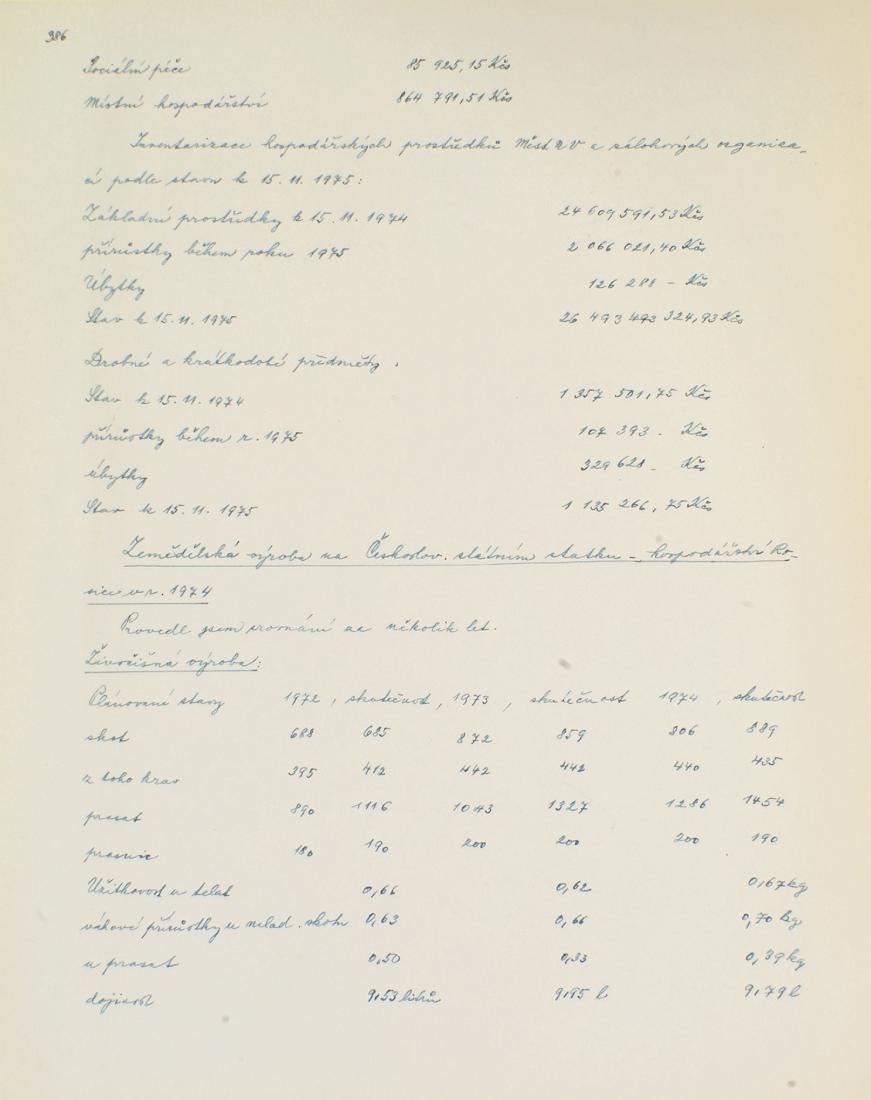 386
Sociální péče 85 925,15 Kčs
Místní hospodářství 864 791,51 Kčs
Inventarizace hospodářských prostředků MístNV a zálohových organiza_
cí podle stavu k 15. 11. 1975:
Základní prostředky k 15. 11. 1974 24 609 591,53 Kčs
přírůstky během roku 1975 2 066 021,40 Kčs
Úbytky 126 288 – Kčs
Stav k 15. 11. 1975 26 493 493 324,93 Kčs
Drobné a krátkodobé předměty.
Stav k 15. 11. 1974 1 357 501,75 Kčs
přírůstky během r. 1975 107 393 . Kčs
úbytky 329 628 – Kčs
Stav k 15. 11. 1975 1 135 266,75 Kčs
Zemědělská výroba na Českoslov. státním statku – hospodářství Ro-
sice v r. 1974
Provedl jsem srovnání za několik let.
Živočišná výroba:
Plánované stavy 1972, skutečnost, 1973, skutečnost 1974, skutečnost
skot 688 685 872 859 806 889
z toho krav 395 412 442 442 440 435
prasat 890 1116 1043 1327 1286 1454
prasnic 180 190 200 200 200 190
Užitkovost u telat 0,66 0,62 0,67 kg
váhové přírůstky u mlad. skotu 0,63 0,66 0,70 kg
u prasat 0,50 0,33 0,39 kg
dojivost 9,53 litrů 9,95 l 9,79 l